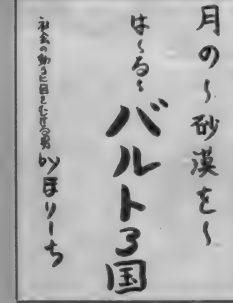 月の～砂漠を～
は～る～
バルト3国
社会の動きに目をむける男
byほりーち